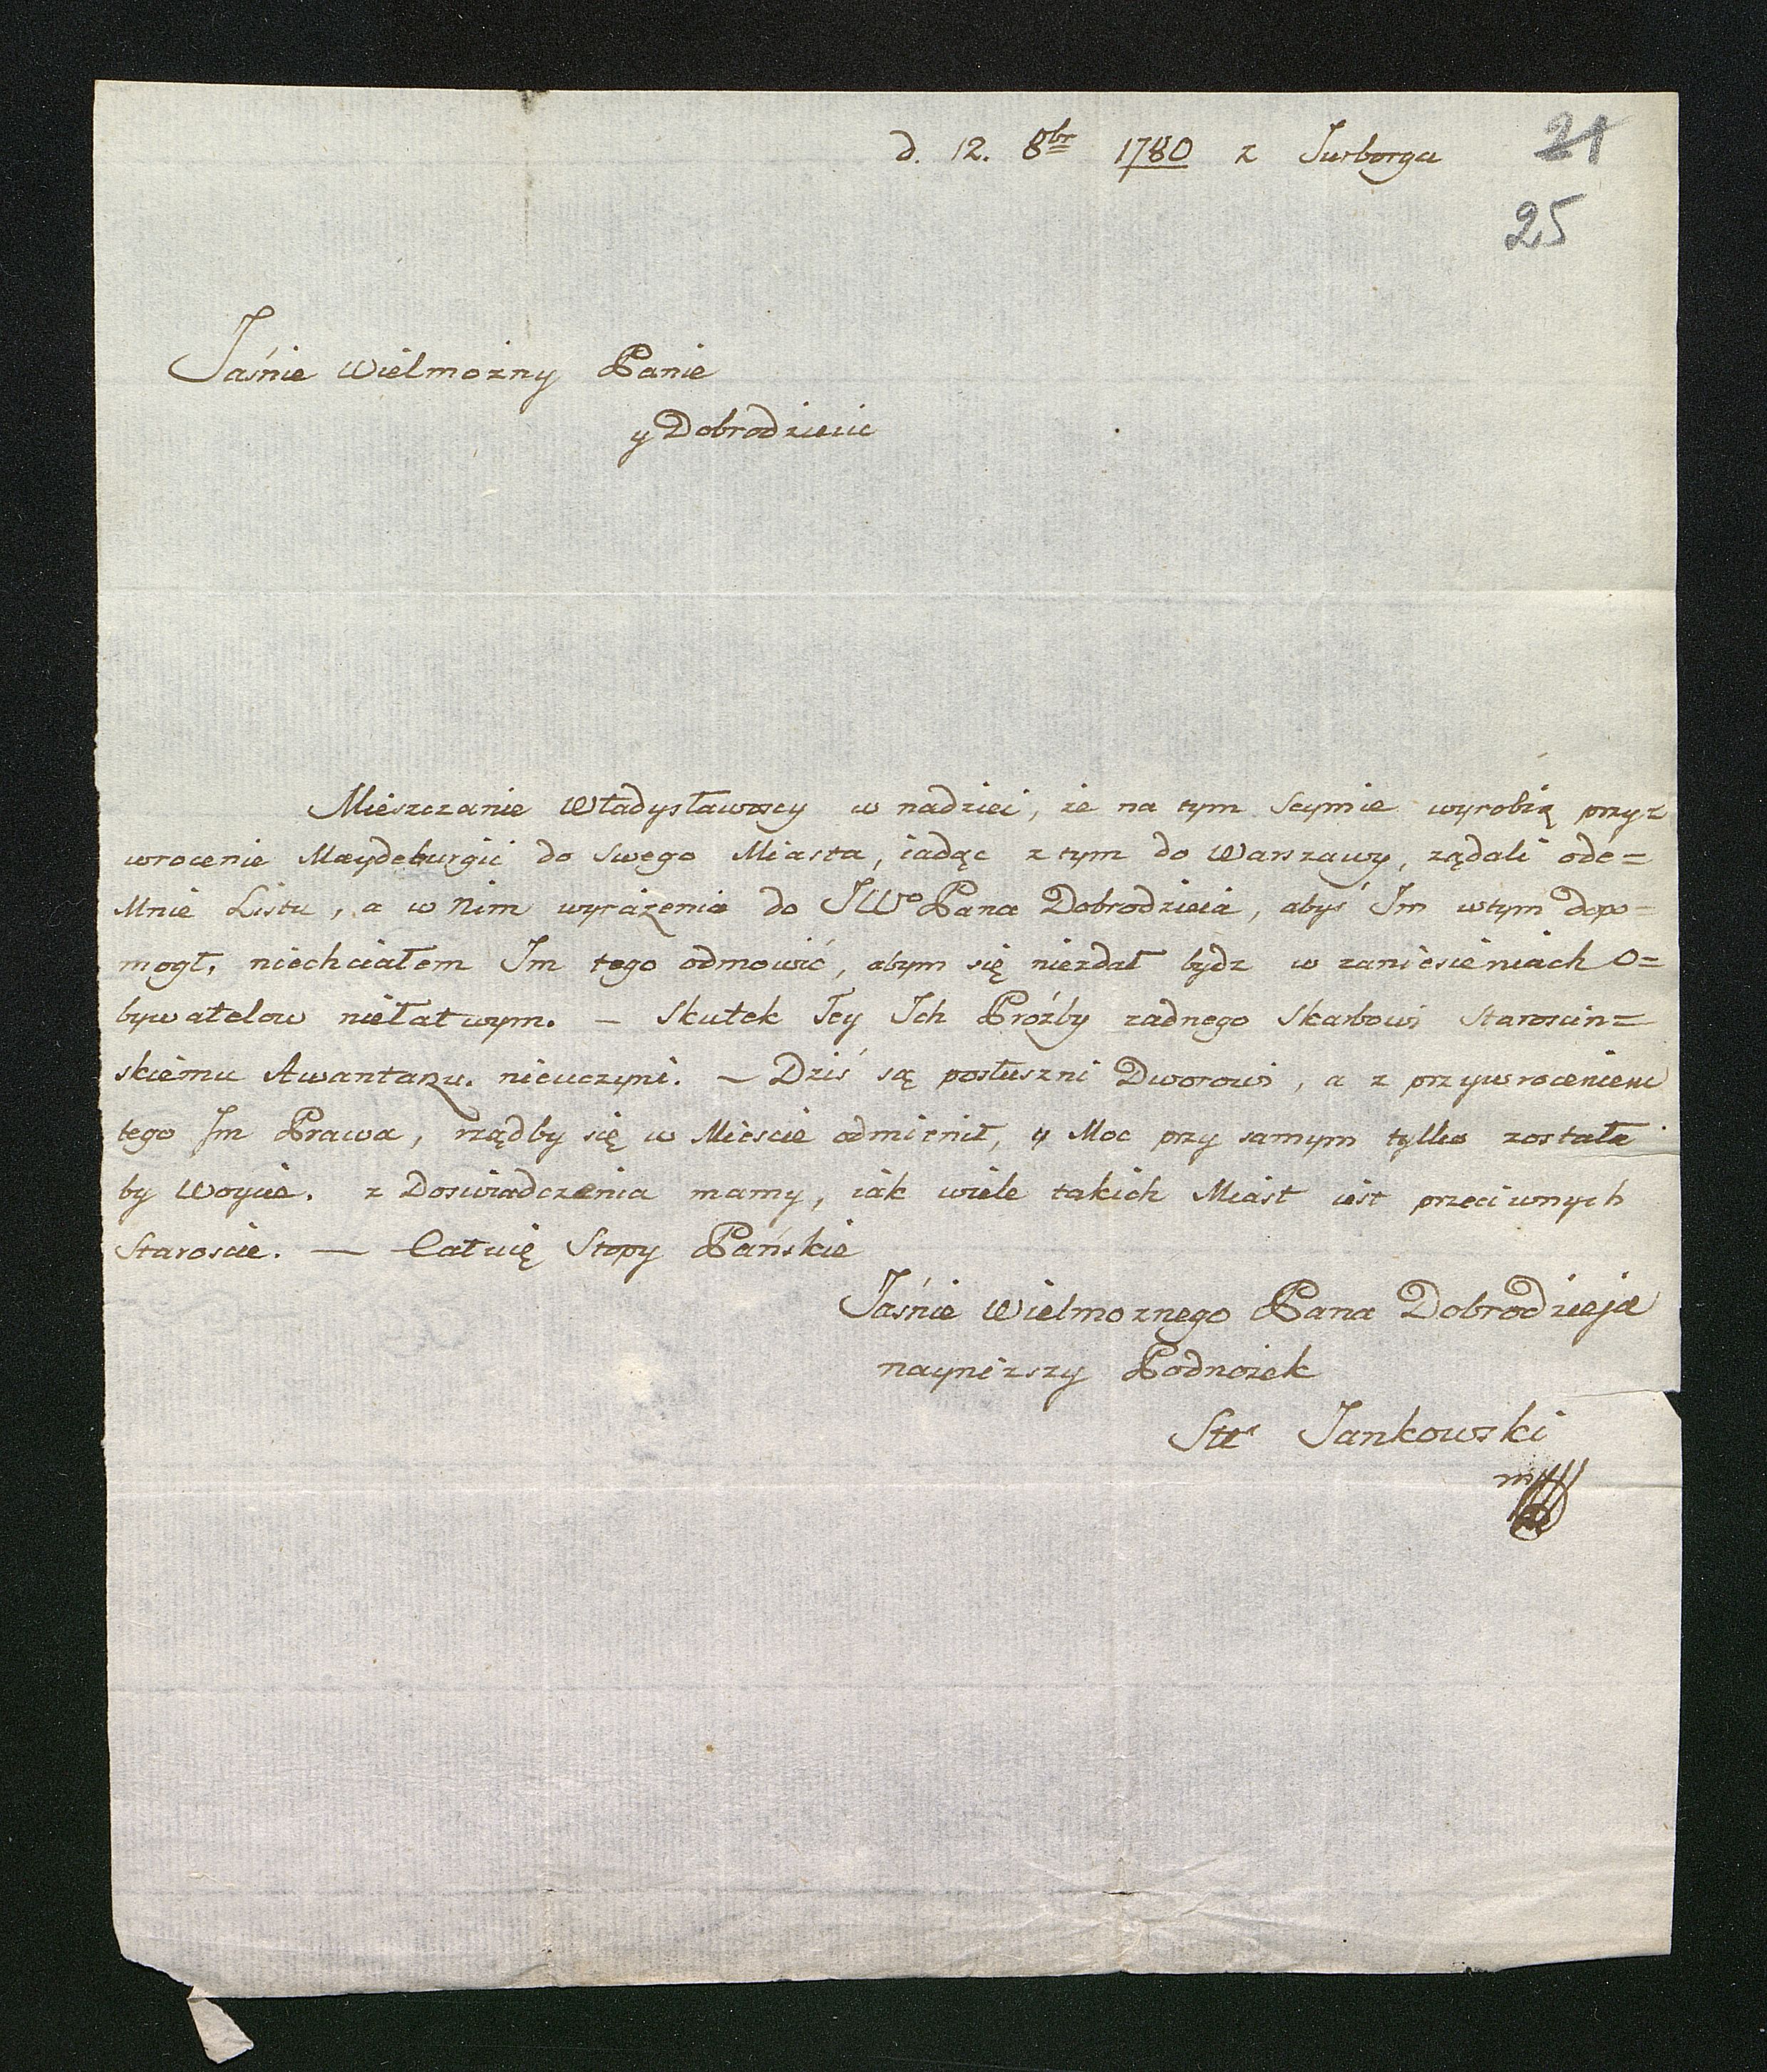 d. 12. 8br 1780 z Jurborga
21
25
Jaśnie Wielmożny Panie
y Dobrodzieiu
Mieszczanie Władysławscy w nadziei, że na tym Seymie wyrobią przy=
wrocenie Maydeburgii do swego Miasta, iadąc z tym do Warszawy, rządali ode=
Mnie Listu, a w Nim wyrażenia do JWo Pana Dobrodzieia, abyś Jm w tym dopo=
mogł, niechciałem Jm tego odmowić, abym się niezdał bydz w zaniesieniach O=
bywatelow niełatwym. — Skutek Tey Jch Proźby zadnego Skarbowi Staroscin=
skiemu Awantażu nieuczyni. — Dziś są posłuszni Dworowi, a z przywroceniem
tego Jm Prawa, rządby się w Miescie odmienił, y Moc przy samym tylko została
by Woycie. z Doswiadczenia mamy, iak wiele takich Miast iest przeciwnych
Staroscie. — Całuię Stopy Pańskie
Jaśnie Wielmoznego Pana Dobrodzieja
nayniższy Podnożek
Jankowski
mp